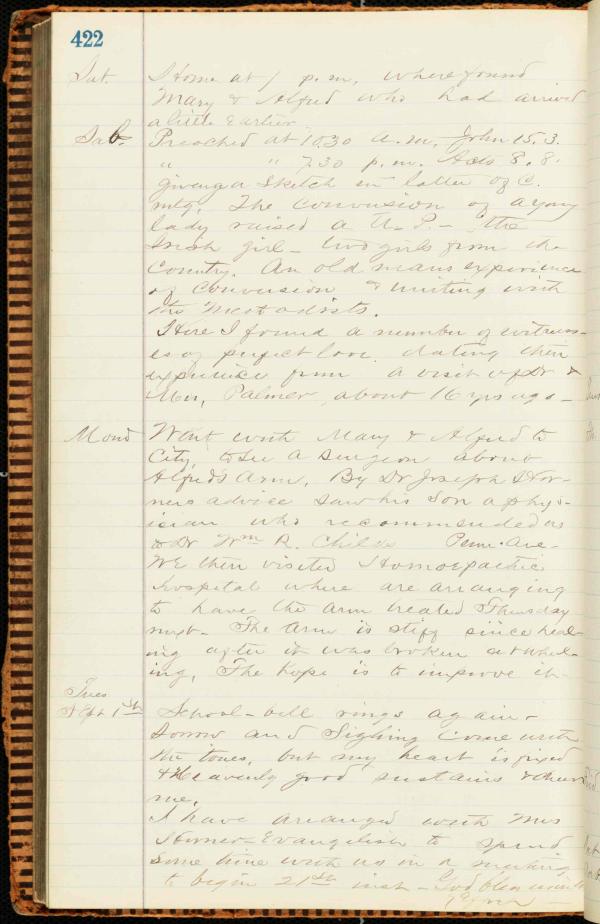 422
Sat. Home at 1 p.m. where found
Mary & Alfred who had arrived
a little earlier
Sab. Preached at 10.30 a.m. John 15.3.
" " 7.30 p.m. Acts 8.8.
giving a sketch in latter of C.
mtg. The conversion of a young
lady raised a U.P. - "the
Irish girl - two girls from the
Country. An old mans experience
of conversion & uniting with
the Methodists.
Here I found a number of witness-
es of perfect love, dating their
experience from a visit of Dr &
Mrs. Palmer about 16 yrs ago -
Mond Went with Mary & Alfred to
City, to see a surgeon about
Alfred's arm. By Dr Joseph Hor-
ners advice saw his son a phys-
ician who recommended us
to Dr Wm R. Childs Penn. Ave.
We then visited Homoepathic
hospital where are arranging
to have the arm treated Thursday
next. The arm is stiff since heal-
ing after it was broken at Wheel-
ing. The hope is to improve it.
Tues
Sept 1st School-bell rings again -
Sorrow and Sighing come with
the tones, but my heart is fixed
& Heavenly good sustains & cheers
me.
I have arranged with Mrs
Horner - Evangelist to spend
some time with us in a meeting
to begin 21st inst - God bless